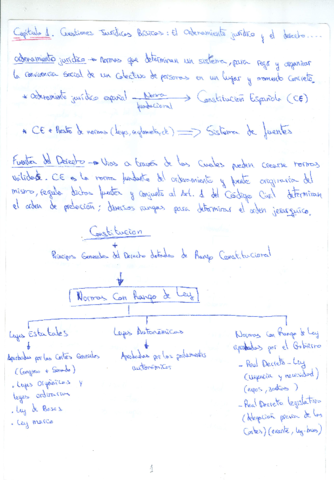 Capítulo 1. Cuestiones Jurídicas Básicas: El ordenamiento jurídico y el derecho....
ordenamiento jurídico → Normas que determinan un sistema, para regir y organizar
la convivencia social de un colectivo de personas en un lugar y momento concreto.
* ordenamiento jurídico español Norma fundacional → Constitución Española (CE)
* CE + Resto de normas (leyes, reglamento, etc) ⟹ Sistema de fuentes
Fuentes del Derecho → Vías a través de las cuales pueden crearse normas
válidas. CE es la norma fundante del ordenamiento y fuente originaria del
mismo, regula dichas fuentes y conjunto al Art. 1 del Código Civil determinan
el orden de prelación: diversos campos para determinar el orden jerárquico.
Constitución
+
Principios Generales del Derecho dotados de Rango Constitucional
Normas Con Rango de Ley
Leyes Estatales
Aprobadas por las Cortes Generales
(Congreso + Senado)
- Leyes orgánicas y
leyes ordinarias
- Ley de Bases
- Ley marco
Leyes Autonómicas
Aprobadas por los parlamentos
autonómicos
Normas con Rango de Ley
aprobadas por el Gobierno
- Real Decreto-Ley
(Urgencia y necesidad)
- Real Decreto legislativo
(delegación previa de las
Cortes)
1